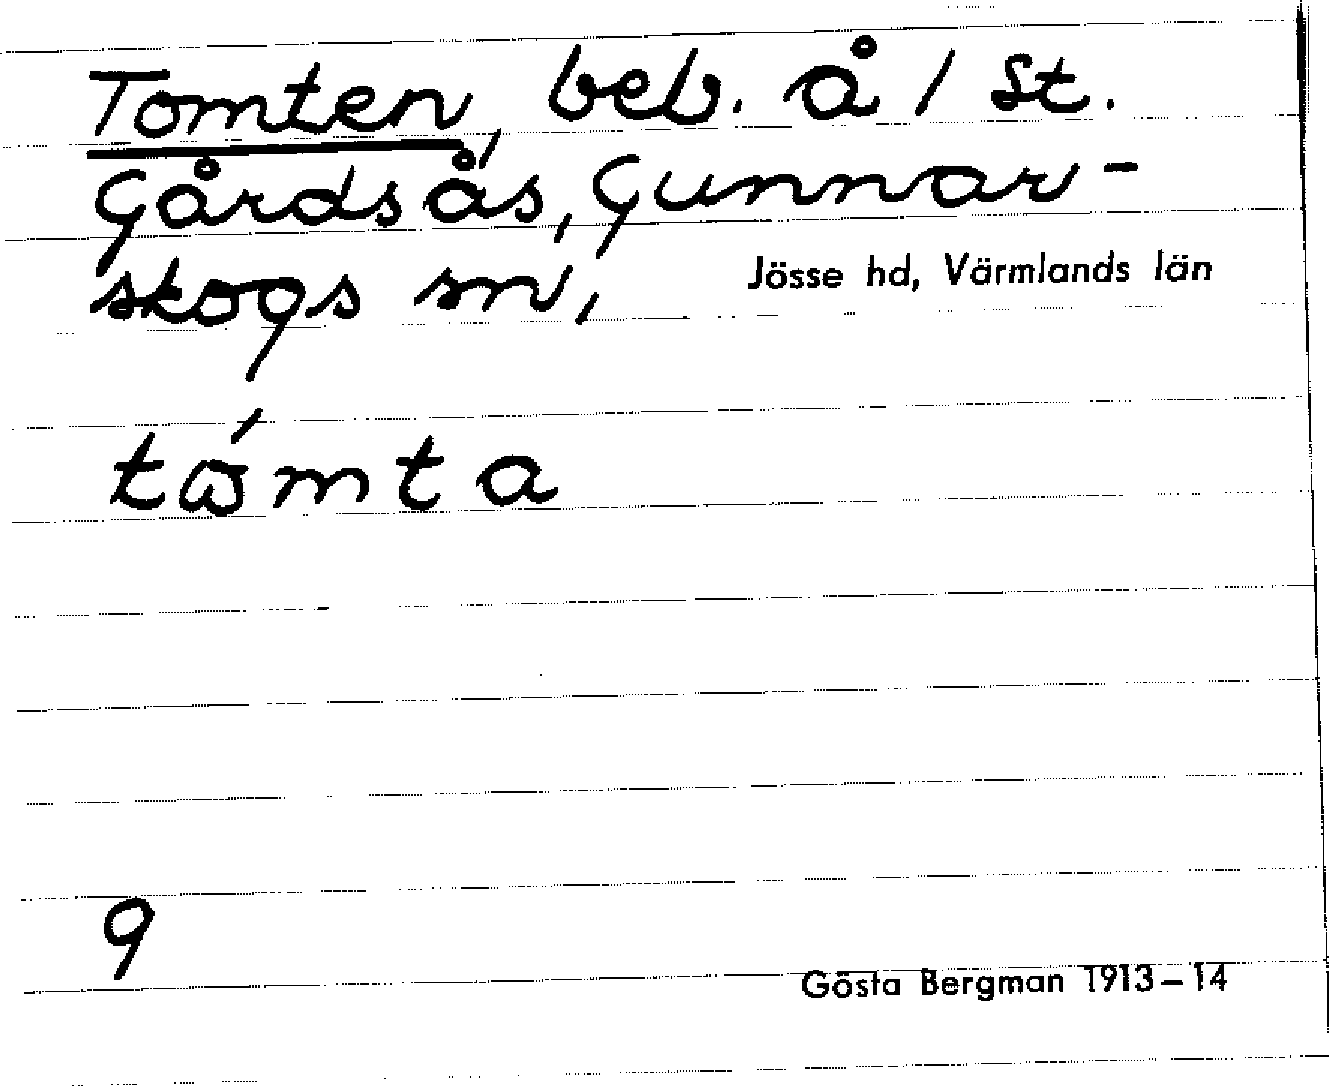 Tomten, beb. å / St.
Gårdsås, Gunnar-
skogs sn, Jösse hd, Värmlands län
9
Gösta Bergman 1913–14